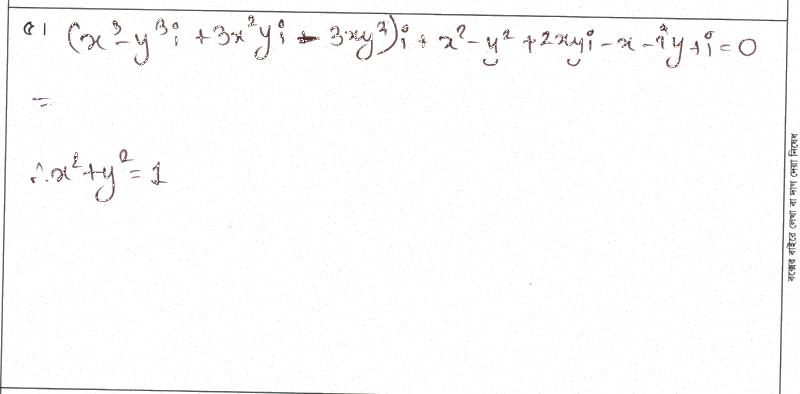 ৫। (x³ - y³i + 3x²yi - 3xy²)i + x² - y² + 2xyi - x - iy + i = 0
=
∴ x² + y² = 1
বক্সের বাইরে লেখা বা দাগ দেয়া নিষেধ